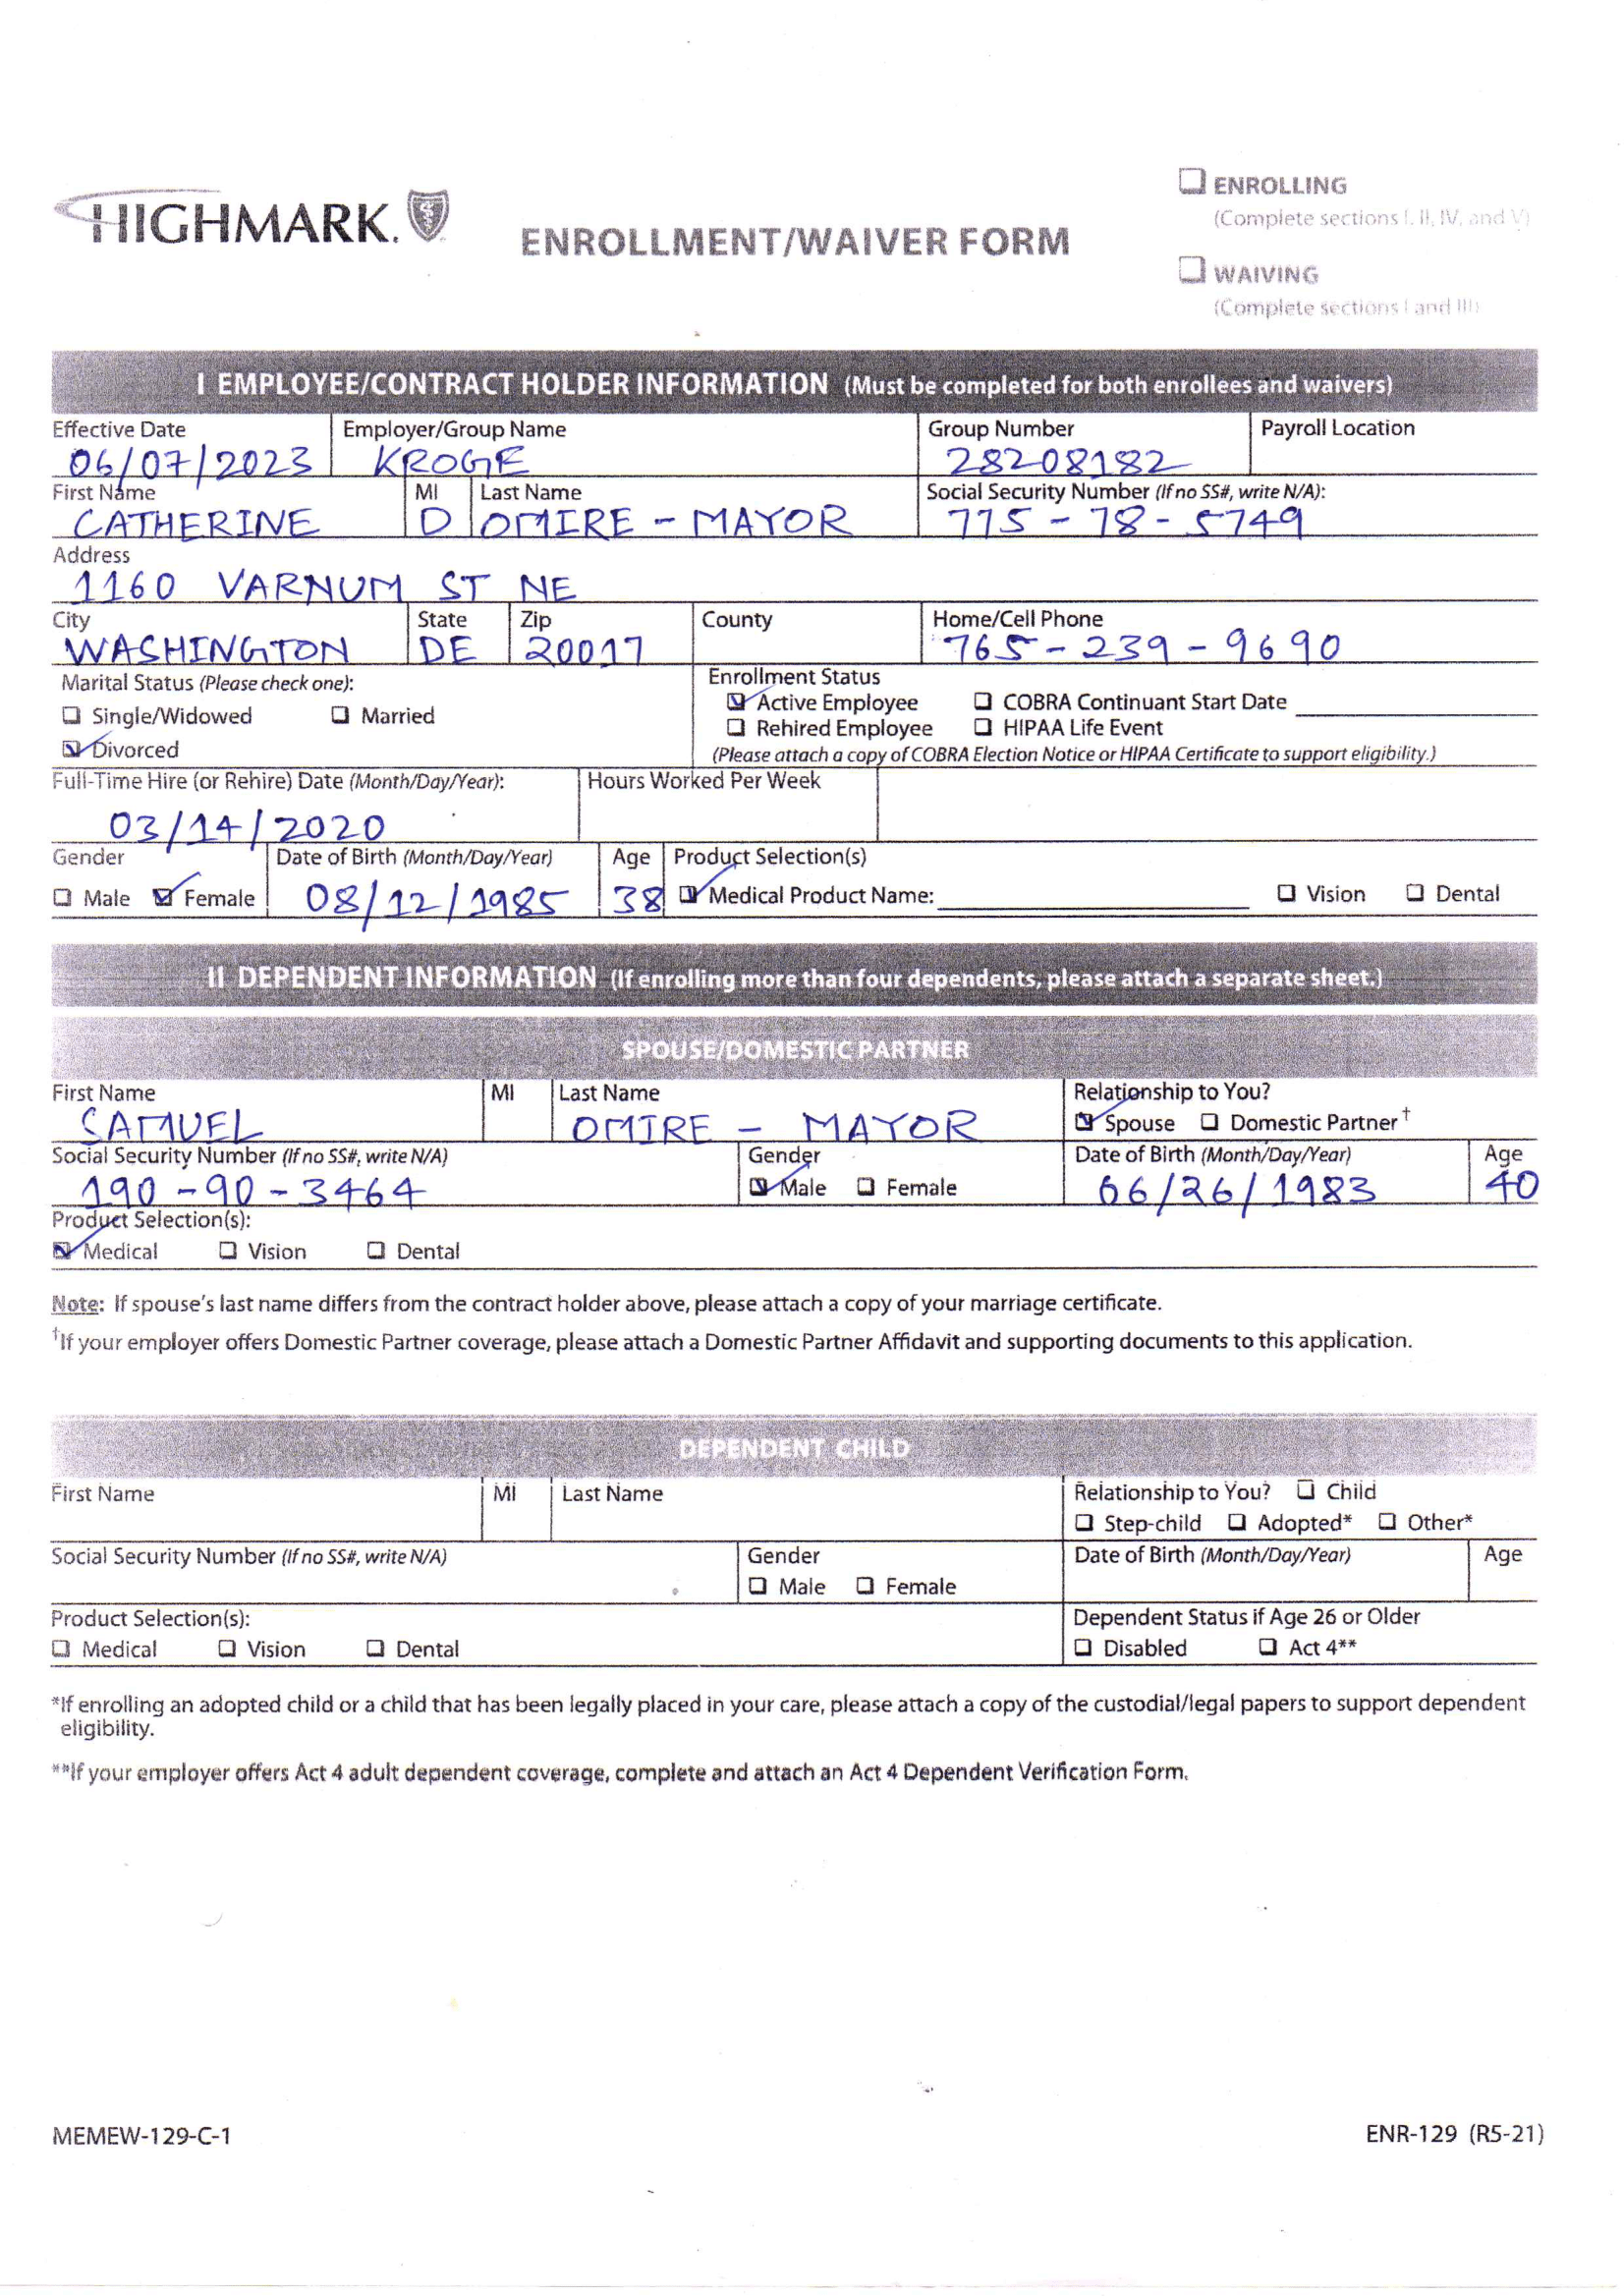 HIGHMARK.
ENROLLMENT/WAIVER FORM
ENROLLING
(Complete sections I, II, IV, and V)
WAIVING
(Complete sections I and III)
I EMPLOYEE/CONTRACT HOLDER INFORMATION (Must be completed for both enrollees and waivers)
Effective Date Employer/Group Name Group Number Payroll Location
06/07/2023 KROGE 28208182
First Name MI Last Name Social Security Number (If no SS#, write N/A):
CATHERINE D OMIRE - MAYOR 775 - 78 - 5749
Address
1160 VARNUM ST NE
City State Zip County Home/Cell Phone
WASHINGTON DE 20017 765 - 239 - 9690
Marital Status (Please check one): Enrollment Status
Single/Widowed Married Active Employee COBRA Continuant Start Date
Divorced Rehired Employee HIPAA Life Event
(Please attach a copy of COBRA Election Notice or HIPAA Certificate to support eligibility.)
Full-Time Hire (or Rehire) Date (Month/Day/Year): Hours Worked Per Week
03/14/2020
Gender Date of Birth (Month/Day/Year) Age Product Selection(s)
Male Female 08/12/1985 38 Medical Product Name: Vision Dental
II DEPENDENT INFORMATION (If enrolling more than four dependents, please attach a separate sheet.)
SPOUSE/DOMESTIC PARTNER
First Name MI Last Name Relationship to You?
SAMUEL OMIRE - MAYOR Spouse Domestic Partner†
Social Security Number (If no SS#, write N/A) Gender Date of Birth (Month/Day/Year) Age
190 - 90 - 3464 Male Female 06/26/1983 40
Product Selection(s):
Medical Vision Dental
Note: If spouse's last name differs from the contract holder above, please attach a copy of your marriage certificate.
†If your employer offers Domestic Partner coverage, please attach a Domestic Partner Affidavit and supporting documents to this application.
DEPENDENT CHILD
First Name MI Last Name Relationship to You? Child
Step-child Adopted* Other*
Social Security Number (If no SS#, write N/A) Gender Date of Birth (Month/Day/Year) Age
Male Female
Product Selection(s): Dependent Status if Age 26 or Older
Medical Vision Dental Disabled Act 4**
*If enrolling an adopted child or a child that has been legally placed in your care, please attach a copy of the custodial/legal papers to support dependent
eligibility.
**If your employer offers Act 4 adult dependent coverage, complete and attach an Act 4 Dependent Verification Form.
MEMEW-129-C-1 ENR-129 (R5-21)